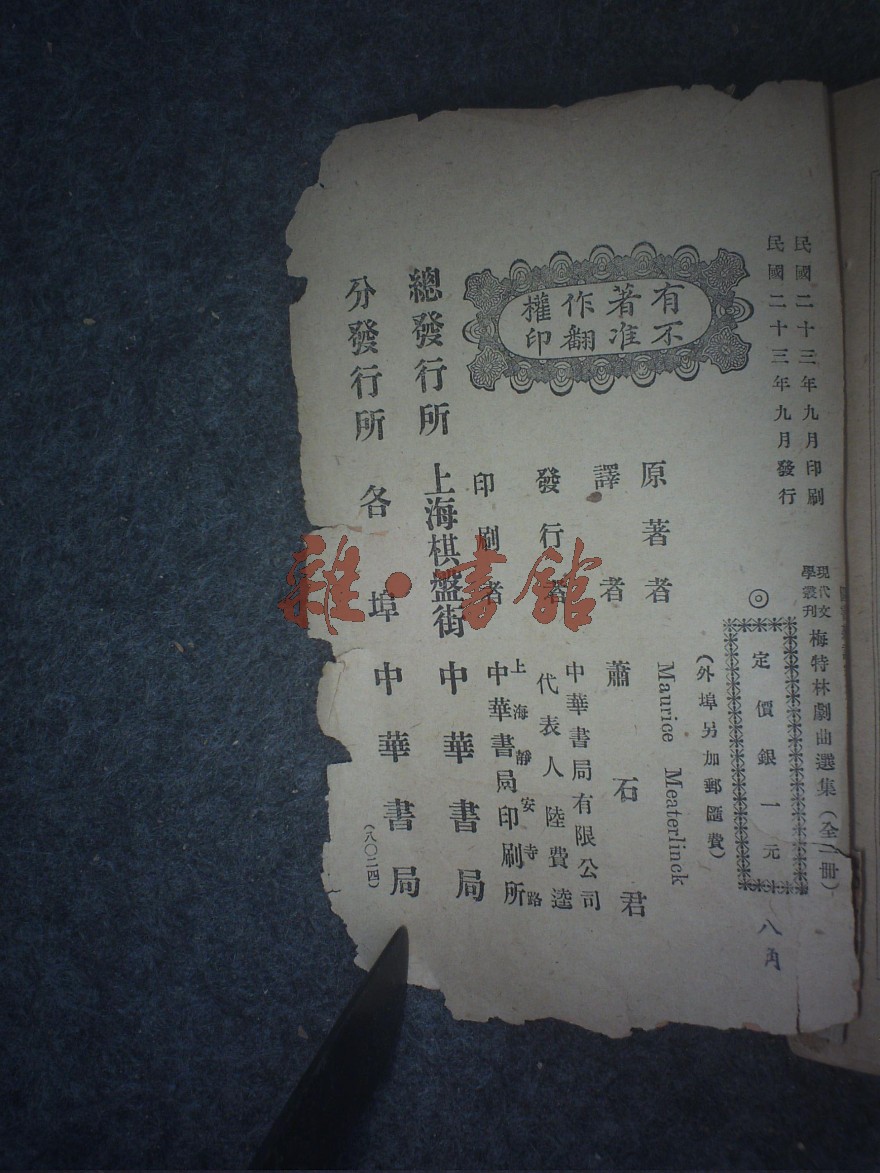 民國二十三年九月印刷
民國二十三年九月發行
現代文學叢刊
梅特林劇曲選集（全一冊）
◎
定價銀一元
八角
（外埠另加郵匯費）
有著作權
不准翻印
原著者 Maurice Meaterlinck
譯者 蕭石君
發行者 中華書局有限公司
代表人陸費逵
印刷者 上海靜安寺路
中華書局印刷所
總發行所 上海棋盤街 中華書局
分發行所 各埠 中華書局
（八〇二四）
雜·書館